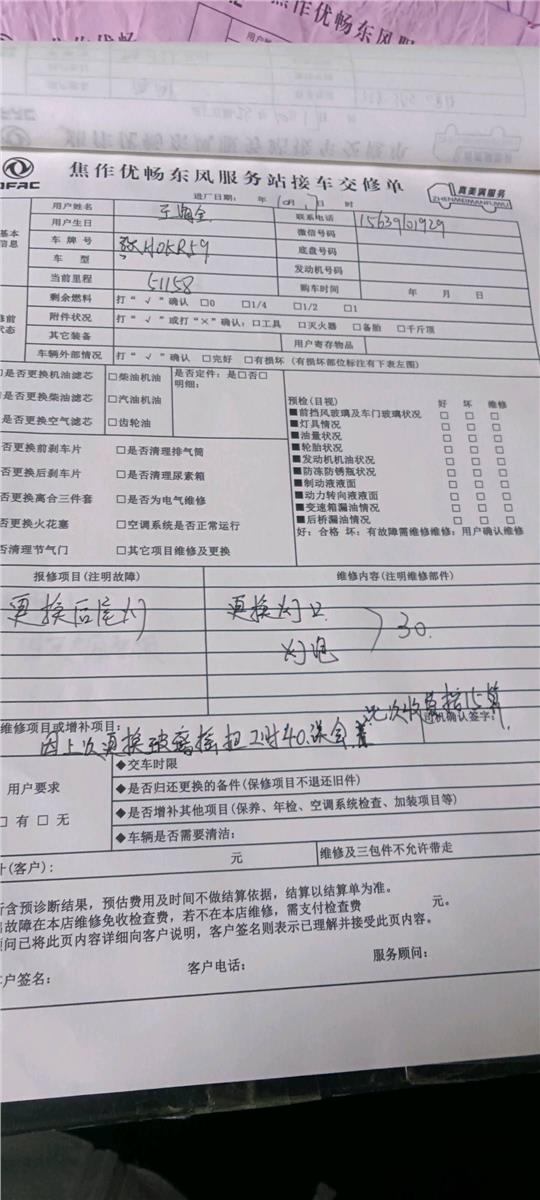 焦作优畅东风服
焦作优畅
DFAC
焦作优畅东风服务站接车交修单
真美满服务
ZHENMEIMANFUWU
进厂日期: 年 10月 17日 时
基本
信息
用户姓名
联系电话 15639101929
用户生日
微信号码
车 牌 号 H05R59
底盘号码
车 型
发动机号码
当前里程 51158
购车时间 年 月 日
修前
状态
剩余燃料 打“√”确认 □0 □1/4 □1/2 □1
附件状况 打“√”或打“×”确认:□工具 □灭火器 □备胎 □千斤顶
其它装备 用户寄存物品
车辆外部情况 打“√”确认 □完好 □有损坏(有损坏部位标注有下表左图)
是否更换机油滤芯 □柴油机油 是否定件:是□否□
明细:
是否更换柴油滤芯 □汽油机油
是否更换空气滤芯 □齿轮油
预检(目视) 好 坏 维修
■前挡风玻璃及车门玻璃状况 □ □ □
■灯具情况 □ □ □
■油量状况 □ □ □
■轮胎状况 □ □ □
■发动机机油状况 □ □ □
■防冻防锈瓶状况 □ □ □
■制动液液面 □ □ □
■动力转向液液面 □ □ □
■变速箱漏油情况 □ □ □
■后桥漏油情况 □ □ □
好:合格 坏:有故障需维修维修:用户确认维修
否更换前刹车片 □是否清理排气筒
否更换后刹车片 □是否清理尿素箱
否更换离合三件套 □是否为电气维修
否更换火花塞 □空调系统是否正常运行
否清理节气门 □其它项目维修及更换
报修项目(注明故障) 维修内容(注明维修部件)
更换后尾灯 更换灯口
灯泡 30.
此次收费按15算
维修项目或增补项目: 司机确认签字:
因上次更换玻璃摇把工时40.
用户要求
□ 有 □ 无
◆交车时限
◆是否归还更换的备件(保修项目不退还旧件)
◆是否增补其他项目(保养、年检、空调系统检查、加装项目等)
◆车辆是否需要清洁:
计(客户): 元 维修及三包件不允许带走
所含预诊断结果,预估费用及时间不做结算依据,结算以结算单为准。
故障在本店维修免收检查费,若不在本店维修,需支付检查费 元。
顾问已将此页内容详细向客户说明,客户签名则表示已理解并接受此页内容。
客户签名: 客户电话: 服务顾问: